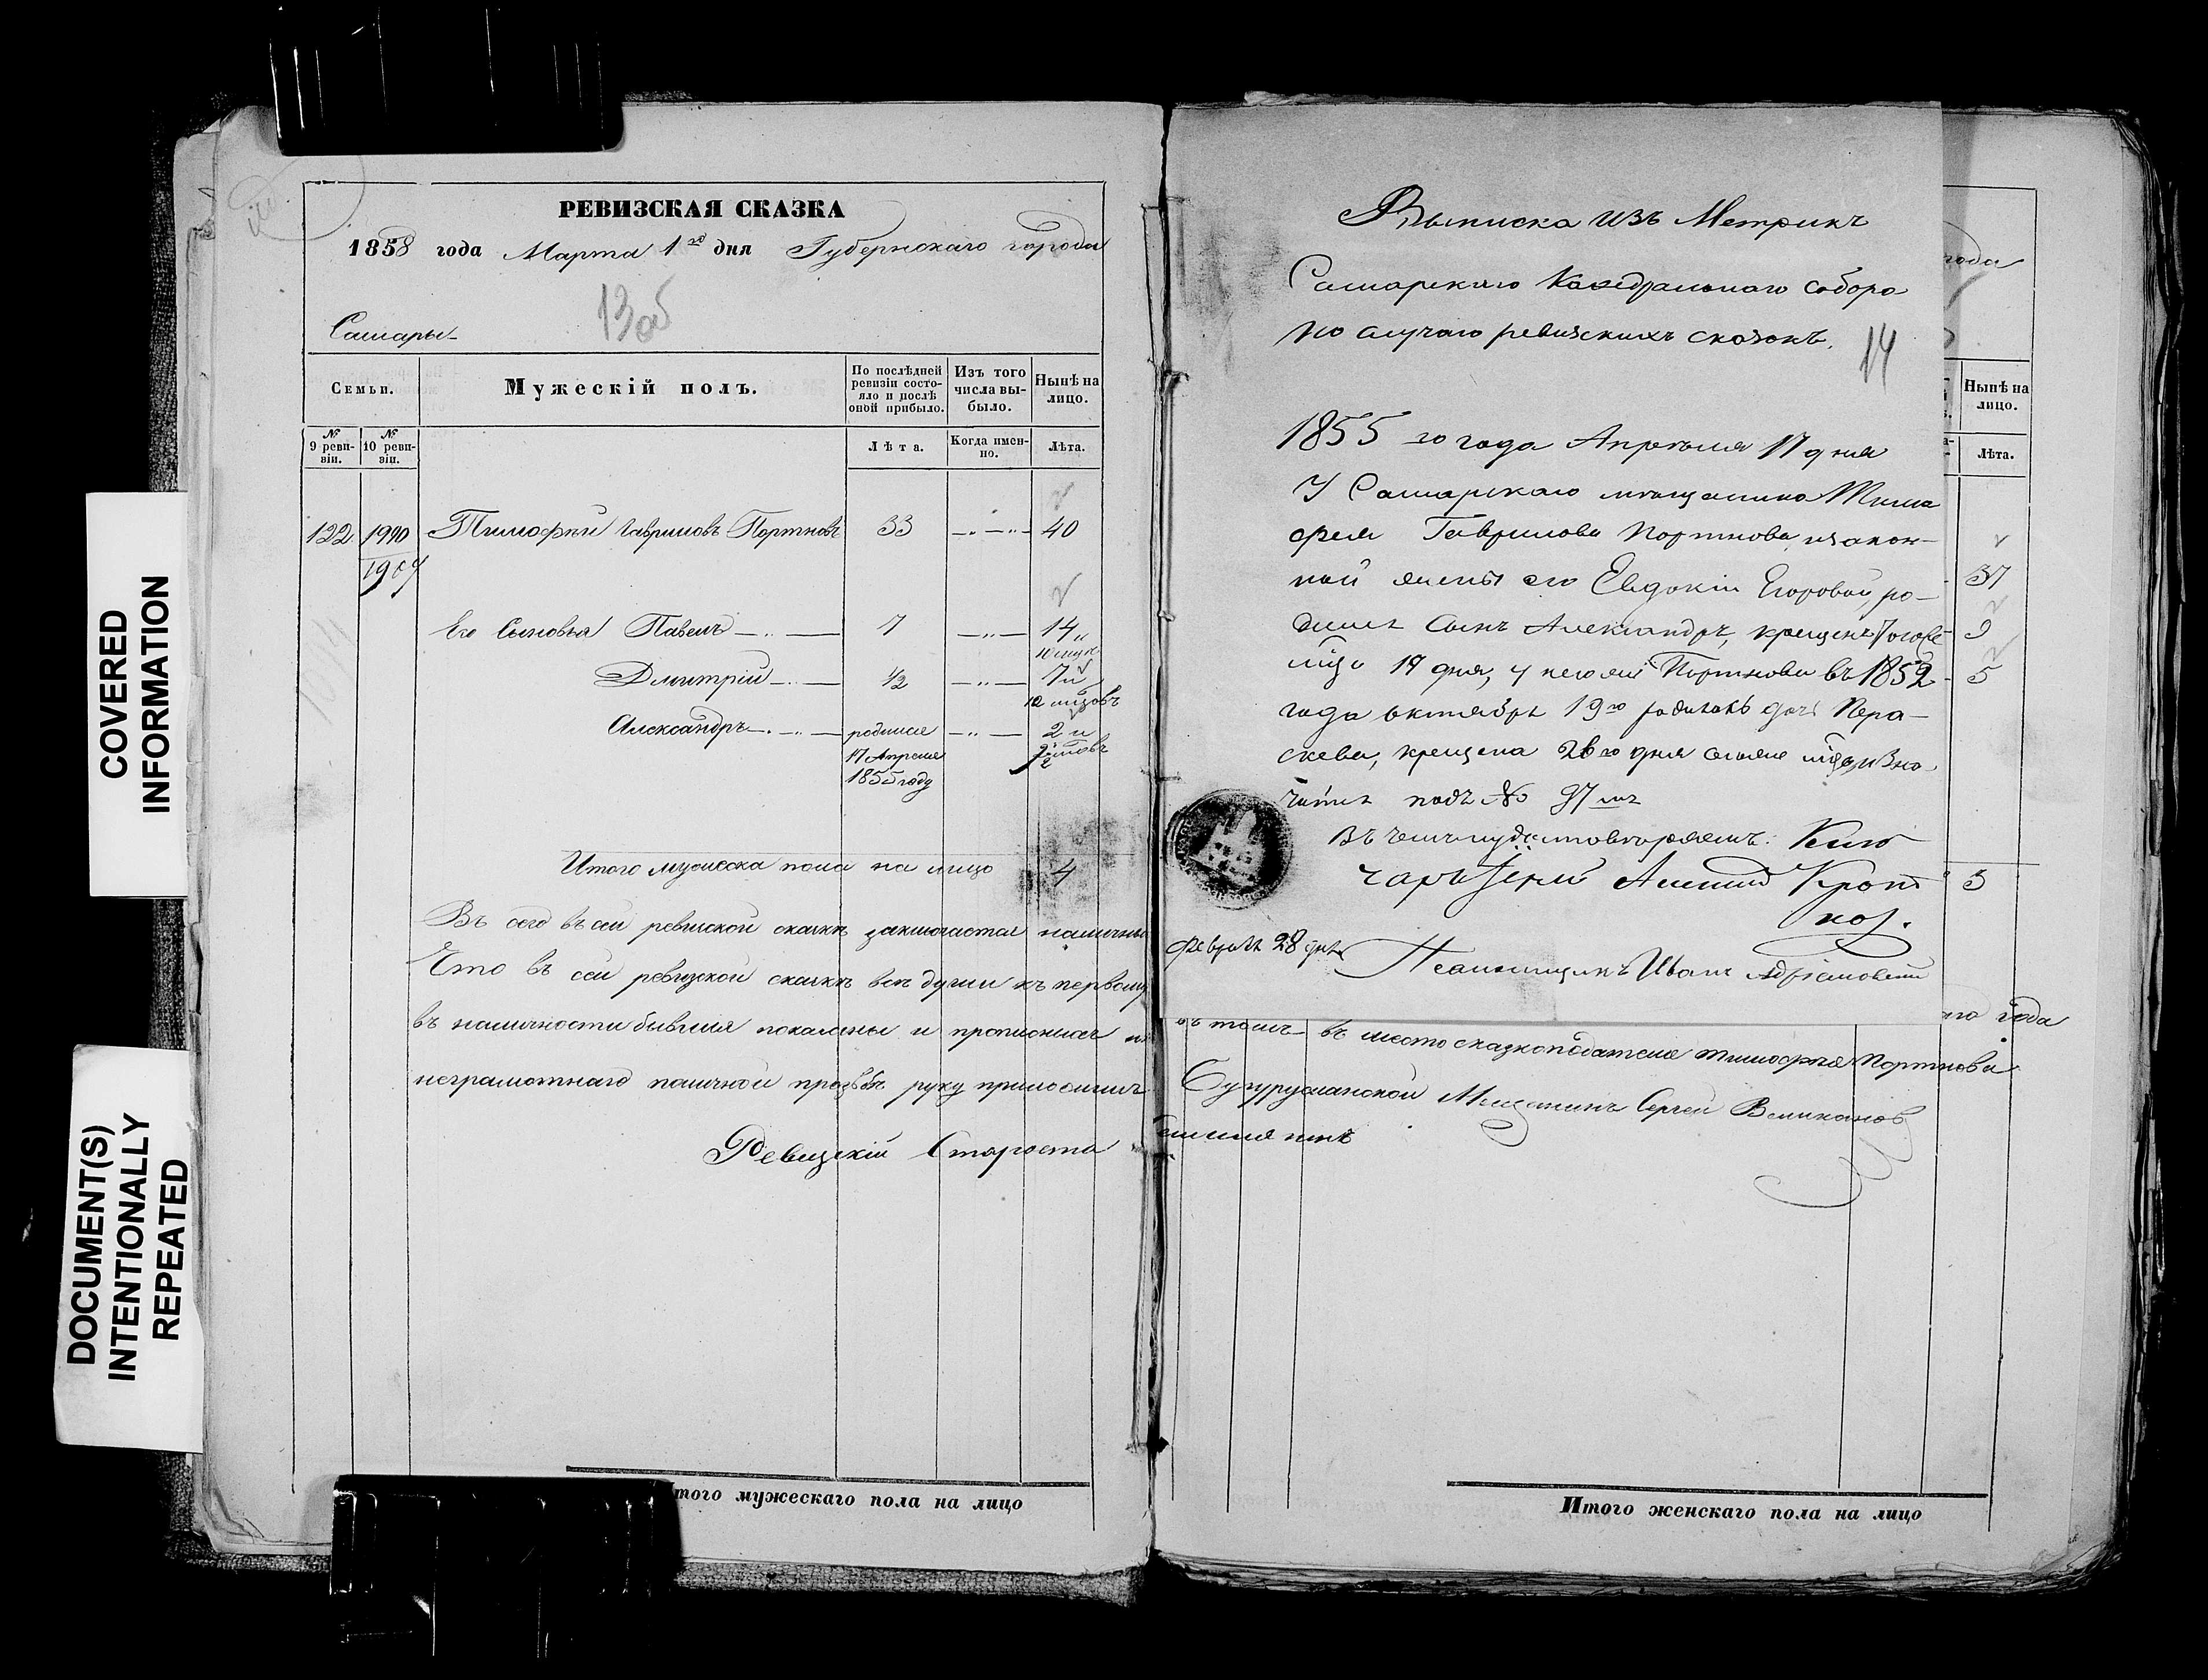 COVERED
INFORMATION
DOCUMENT(S)
INTENTIONALLY
REPEATED
РЕВИЗСКАЯ СКАЗКА
1858 года Марта 1го дня Губернскаго города
13об
Самары
Семьи.
Мужескій полъ.
По послѣдней ревизіи состояло и послѣ оной прибыло.
Изъ того числа выбыло.
Нынѣ на лицо.
№ 9 ревизіи.
№ 10 ревизіи.
Лѣта.
Когда именно.
Лѣта.
122 1990 Тимофѣй Гавриловъ Портновъ 33 40
Его Сыновья Павелъ 7 14
Дмитрій 1/2 7 и
10 мцовъ
Александръ родился 2 и
17 Апреля
1855 году
Итого мужеска пола на лицо 4
Въ сей ревизской сказкѣ заключается
Что въ сей ревизской сказкѣ всѣ души къ первому
въ наличности бывшия показаны и прописныхъ
неграмотнаго личной прозбѣ руку приложилъ
Ревизскій Староста
Итого мужескаго пола на лицо
Выписка изъ Метрикъ
Самарскаго Каѳедральнаго собора
по случаю ревизскихъ сказокъ.
14
1855 го года Апрѣля 17 дня
У Самарскаго мѣщанина Тимо
фея Гаврилова Портнова изакон-
ной жены его Евдокіи Егоровой, ро-
дился Сынъ Александръ, крещенъ того же
мца 17 дня, у него же Портнова въ 1852
года октября 19го родилась дочь Пара-
скева, крещена 26го дня
чится подъ № 97мъ
Въ чемъ и удостовѣряемъ: Клю
чарь Іерей
Февраля 28 дня
Псаломщикъ Иванъ Адріановскій
года
Нынѣ на лицо.
Лѣта.
37
9
5
3
года
въ томъ въ место сказкоподателя тимофея Портнова
Бугурусланской Мещанинъ Сергей Великанов
Итого женскаго пола на лицо